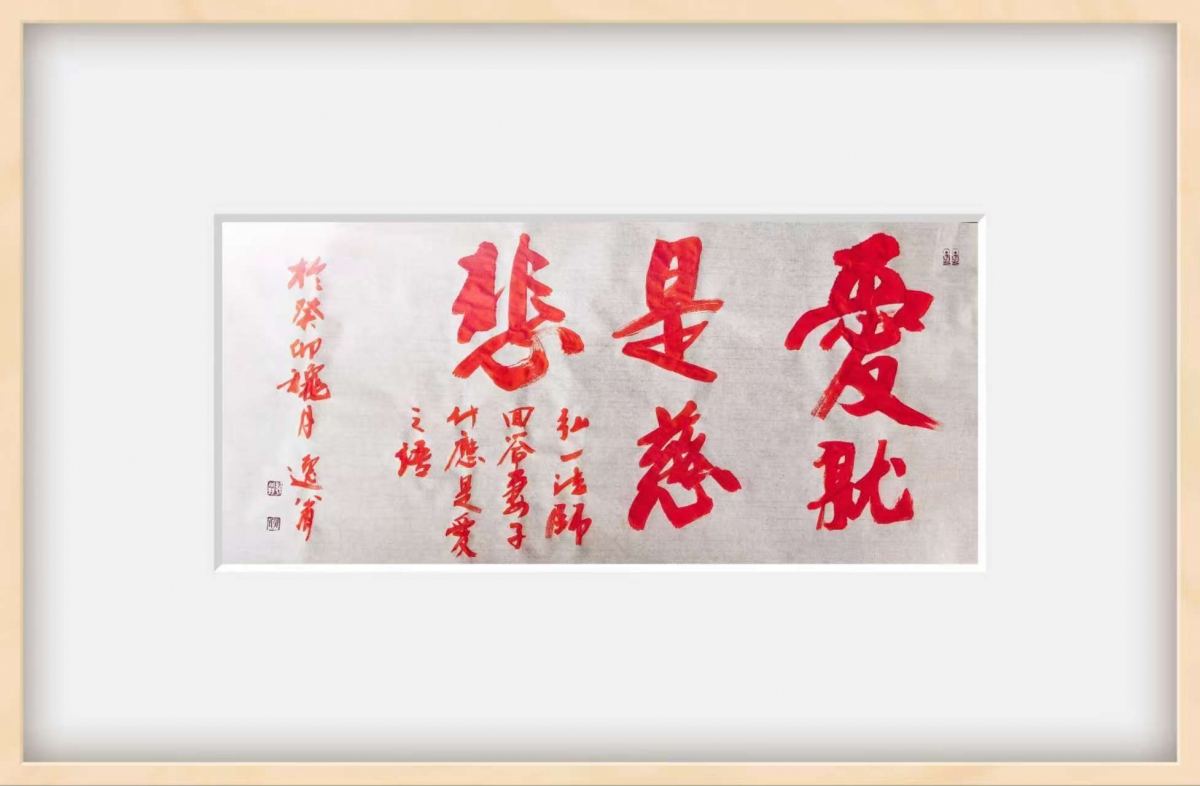 愛就
是慈
悲
弘一法師
回答妻子
什應是愛
之語
於癸卯槐月 逸翁